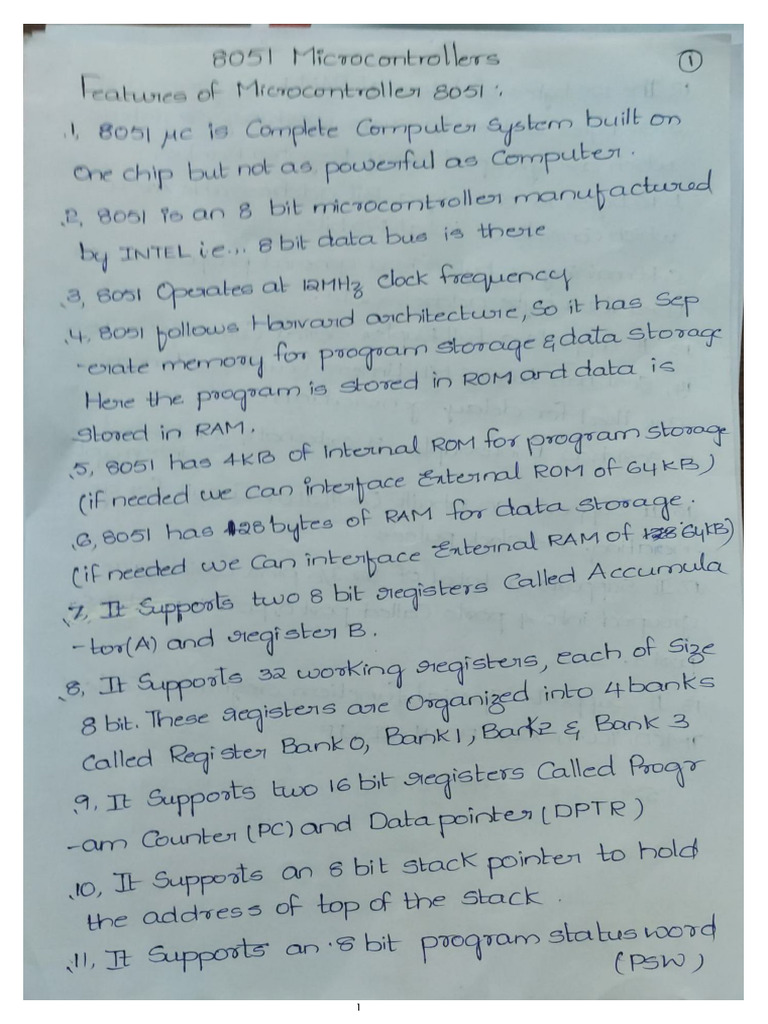 8051 Microcontrollers
①
Features of Microcontroller 8051 :.
1, 8051 μc is Complete Computer System built on
One chip but not as powerful as Computer.
2, 8051 is an 8 bit microcontroller manufactured
by INTEL i.e... 8 bit data bus is there
3, 8051 Operates at 12MHz clock frequency
4, 8051 follows Harvard architecture, So it has Sep
-erate memory for program storage & data storage
Here the program is stored in ROM and data is
stored in RAM.
5, 8051 has 4KB of Internal ROM for program storage
(if needed we can interface External ROM of 64KB)
6, 8051 has 128 bytes of RAM for data storage.
(if needed we can interface External RAM of 64KB)
7, It Supports two 8 bit registers Called Accumula
-tor(A) and register B.
8, It Supports 32 working registers, each of size
8 bit. These registers are Organized into 4 banks
Called Register Bank 0, Bank 1, Bank 2 & Bank 3
9, It Supports two 16 bit registers Called Progr
-am Counter (PC) and Data pointer (DPTR)
10, It Supports an 8 bit stack pointer to hold
the address of top of the stack.
11, It Supports an 8 bit program status word
(PSW)
1